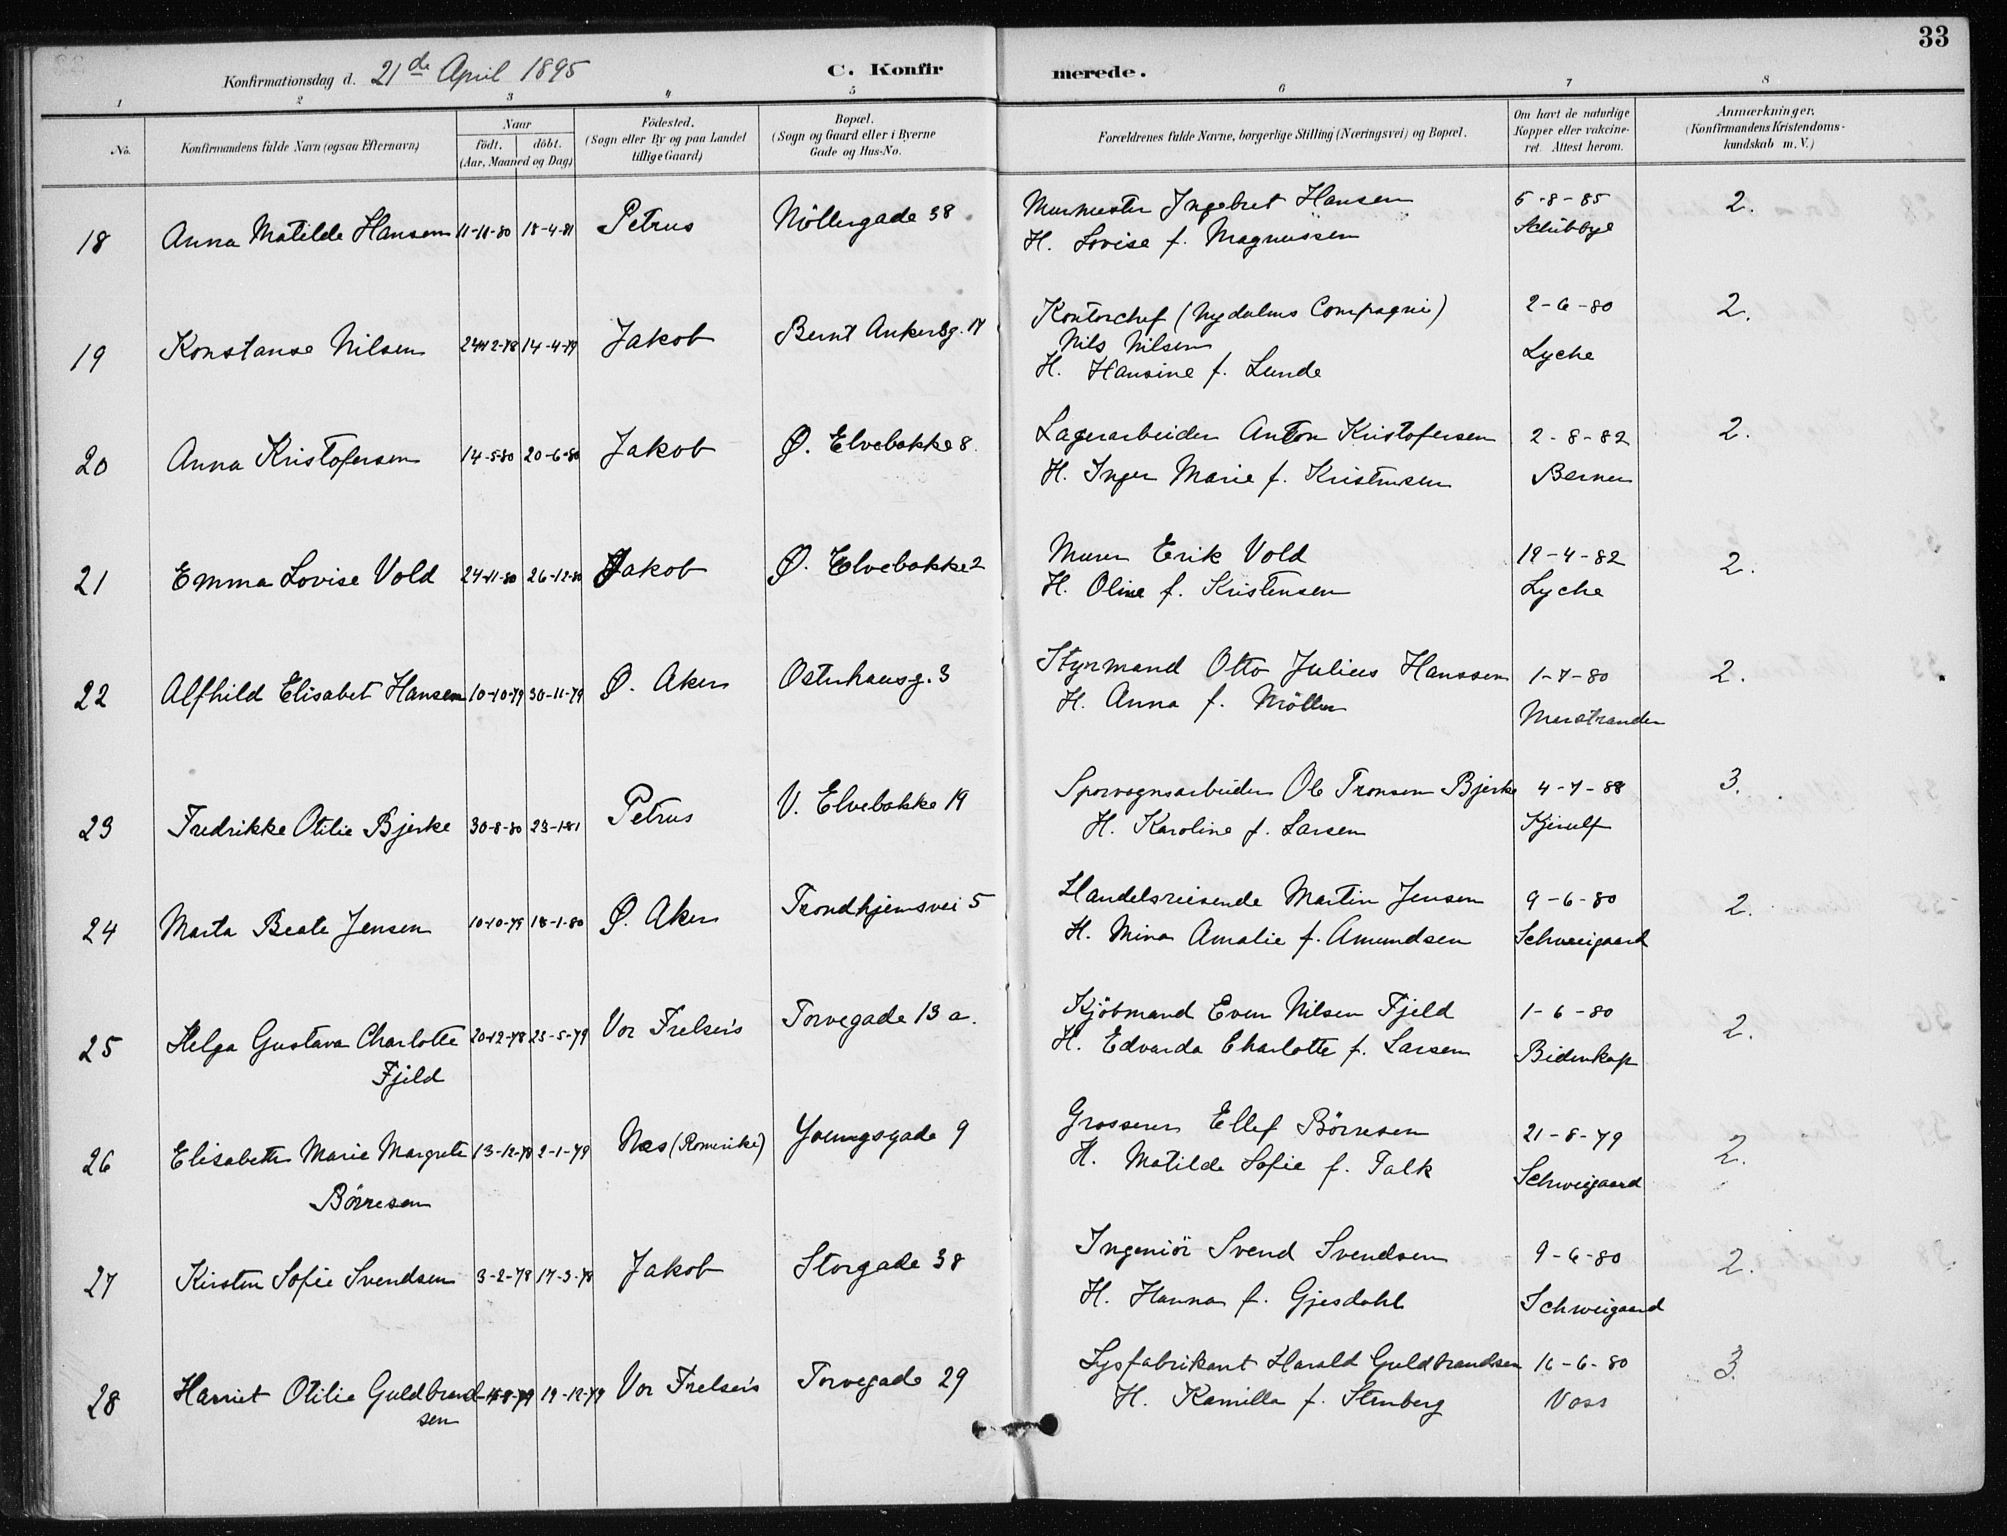 33
Konfirmationsdag d. 21de April 1895 C. Konfirmerede.
1 2 3 4 5 6 7 8
No. Konfirmandens fulde Navn (ogsaa Efternavn) Naar født. døbt. (Aar, Maaned og Dag) Fødested. (Sogn eller By og paa Landet tillige Gaard) Bopæl. (Sogn og Gaard eller i Byerne Gade og Hus-No. Forældrenes fulde Navne, borgerlige Stilling (Næringsvei) og Bopæl. Om havt de naturlige Kopper eller vakcineret. Attest herom. Anmærkninger. (Konfirmandens Kristendomskundskab m. V.)
18 Anna Matilde Hansen 11-11-80 18-4-81 Petrus Möllergade 38 Murmester Ingebret Hansen 5-8-85 2.
H. Lovise f. Magnussen Schibbye
19 Konstanse Nilsen 24-12-78 14-4-79 Jakob Bernt Ankersg. 17 Kontorchef (Nydalens Compagni) 2-6-80 2.
Nils Nilsen
H. Hansine f. Lunde Lyche
20 Anna Kristofersen 14-5-80 20-6-80 Jakob Ø. Elvebakke 8. Lagerarbeider Anton Kristofersen 2-8-82 2.
H. Inger Marie f. Kristensen Berner
21 Emma Lovise Vold 24-11-80 26-12-80 Jakob Ø. Elvebakke 2 Murer Erik Vold 19-4-82 2.
H. Oline f. Kristensen Lyche
22 Alfhild Elisabet Hansen 10-10-79 30-11-79 Ø. Aker Osterhausg. 3 Styrmand Otto Julius Hanssen 1-7-80 2.
H. Anna f. Möller Marstrander
23 Fredrikke Otilie Bjerke 30-8-80 23-1-81 Petrus V. Elvebakke 19 Sporvognsarbeider Ole Tronsen Bjerke 4-7-88 3.
H. Karoline f. Larsen Kjerulf
24 Marta Beate Jensen 10-10-79 18-1-80 Ø. Aker Trondhjemsvei 5 Handelsreisende Martin Jensen 9-6-80 2.
H. Mina Amalie f. Amundsen Schweigaard
25 Helga Gustava Charlotte 20-12-78 25-5-79 Vor Frelsers Torvegade 13 a. Kjöbmand Even Nilsen Fjeld 1-6-80 2.
Fjeld H. Edvarda Charlotte f. Larsen Bidenkap
26 Elisabeth Marie Margrete 13-12-78 2-1-79 Næs (Romerike) Youngsgade 9 Grosserer Ellef Börresen 21-8-79 2.
Börresen H. Matilde Sofie f. Falk Schweigaard
27 Kirsten Sofie Svendsen 3-2-78 17-3-78 Jakob Storgade 38 Ingeniör Svend Svendsen 9-6-80 2.
H. Hanna f. Gjesdahl Schweigaard
28 Harriet Otilie Guldbrand- 19-12-79 Vor Frelsers Torvegade 29 Lysfabrikant Harald Guldbrandsen 16-6-80 3.
sen H. Kamilla f. Stenberg Voss